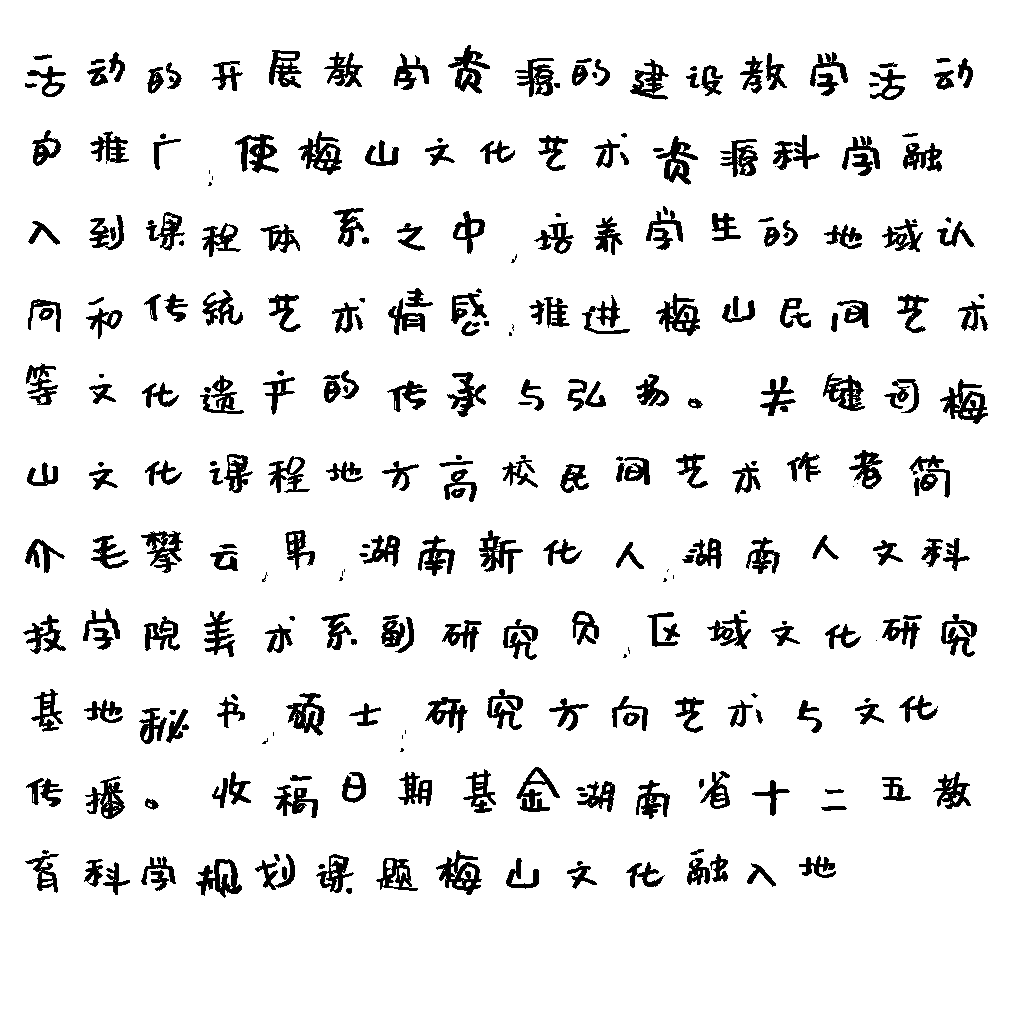 活动的开展教学资源的建设教学活动
的推广,使梅山文化艺术资源科学融
入到课程体系之中,培养学生的地域认
同和传统艺术情感,推进梅山民间艺术
等文化遗产的传承与弘扬。关键词梅
山文化课程地方高校民间艺术作者简
介毛攀云,男,湖南新化人,湖南人文科
技学院美术系副研究员,区域文化研究
基地秘书,硕士,研究方向艺术与文化
传播。收稿日期基金湖南省十二五教
育科学规划课题梅山文化融入地